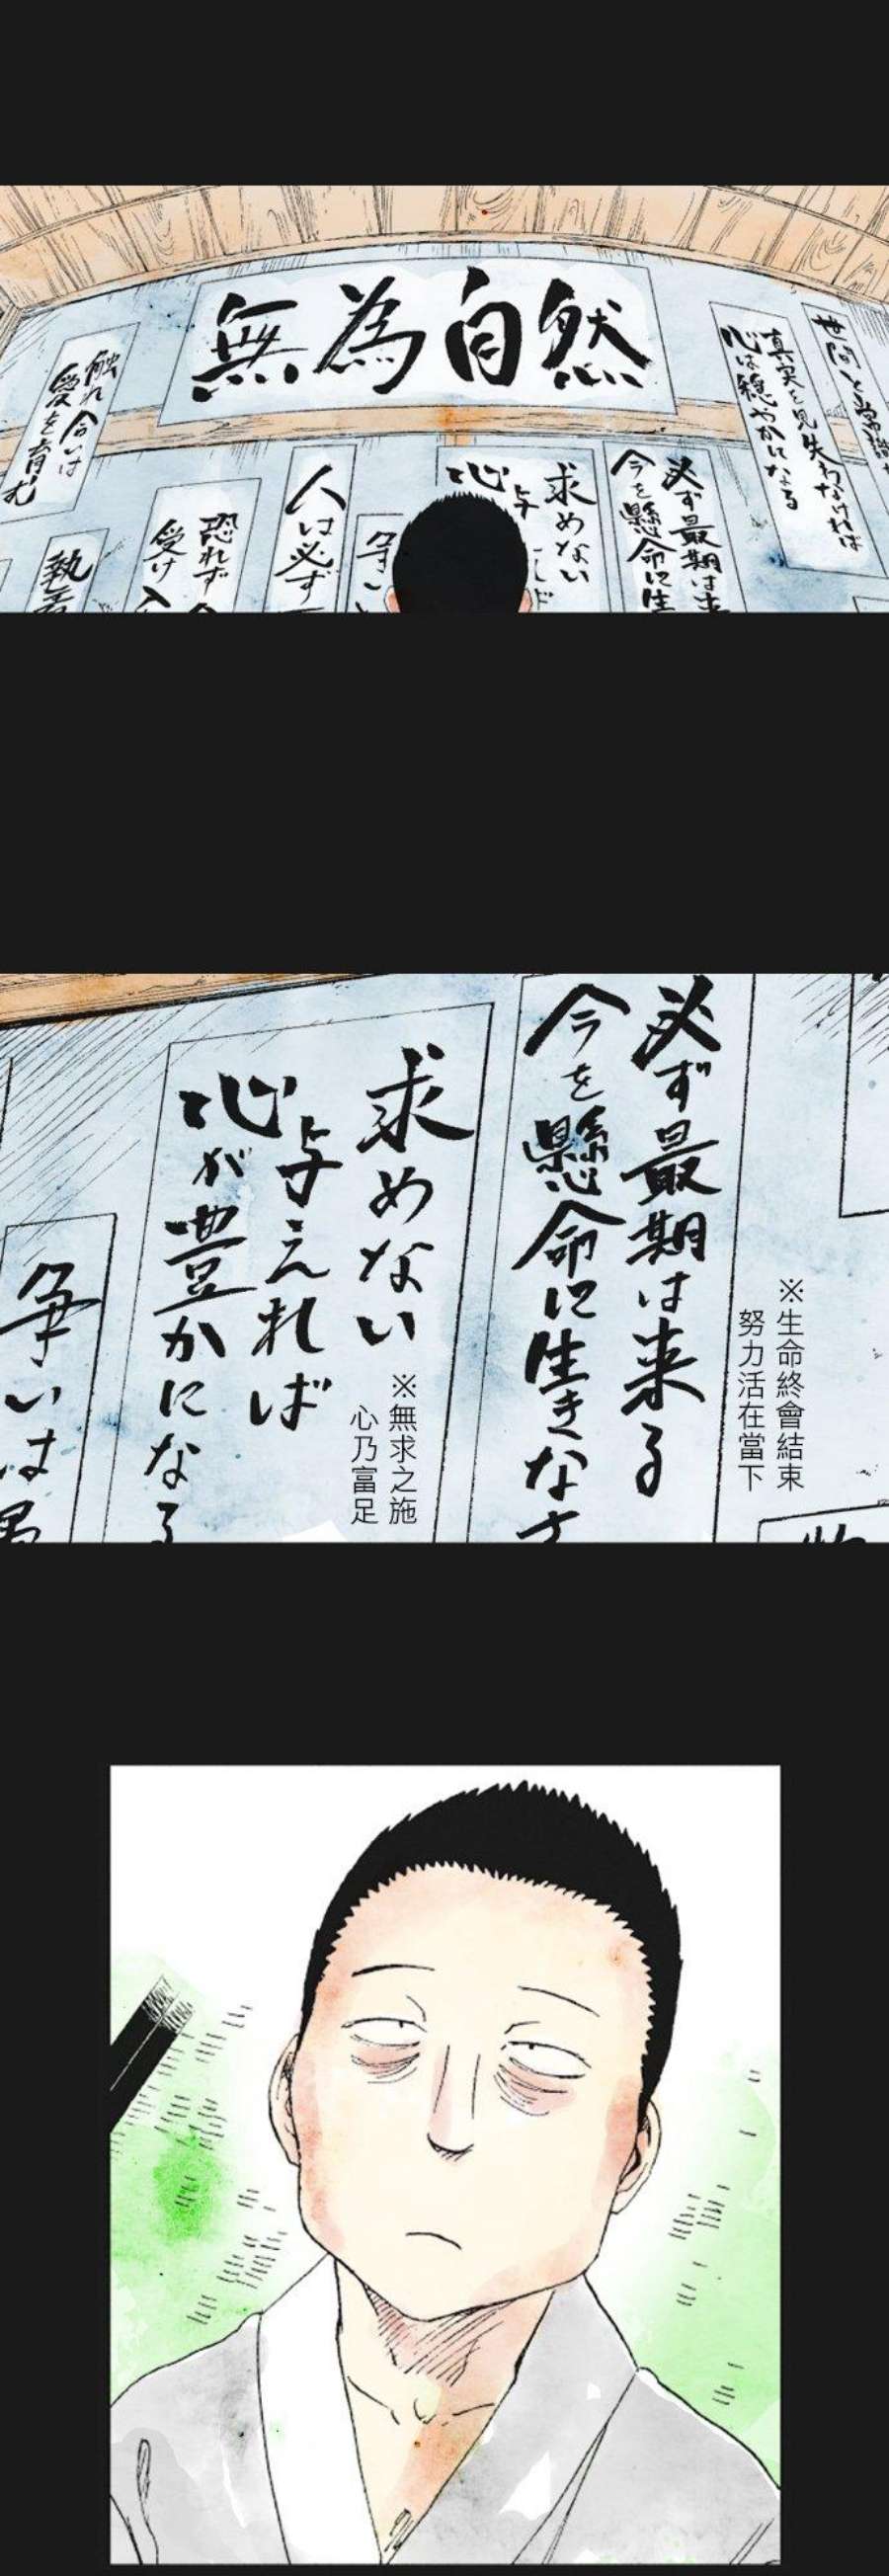 無為自然
世間と常識
真実を見失わなければ
心は穏やかになる
必ず最期は来
今を懸命に生
求めない
与
心
人は必ず
争い
恐れず
受け
触れ合いは
愛を育む
執着
必ず最期は来る
今を懸命に生きなさ
※生命終會結束
努力活在當下
求めない
与えれば
心が豊かになる
※無求之施
心乃富足
争いは